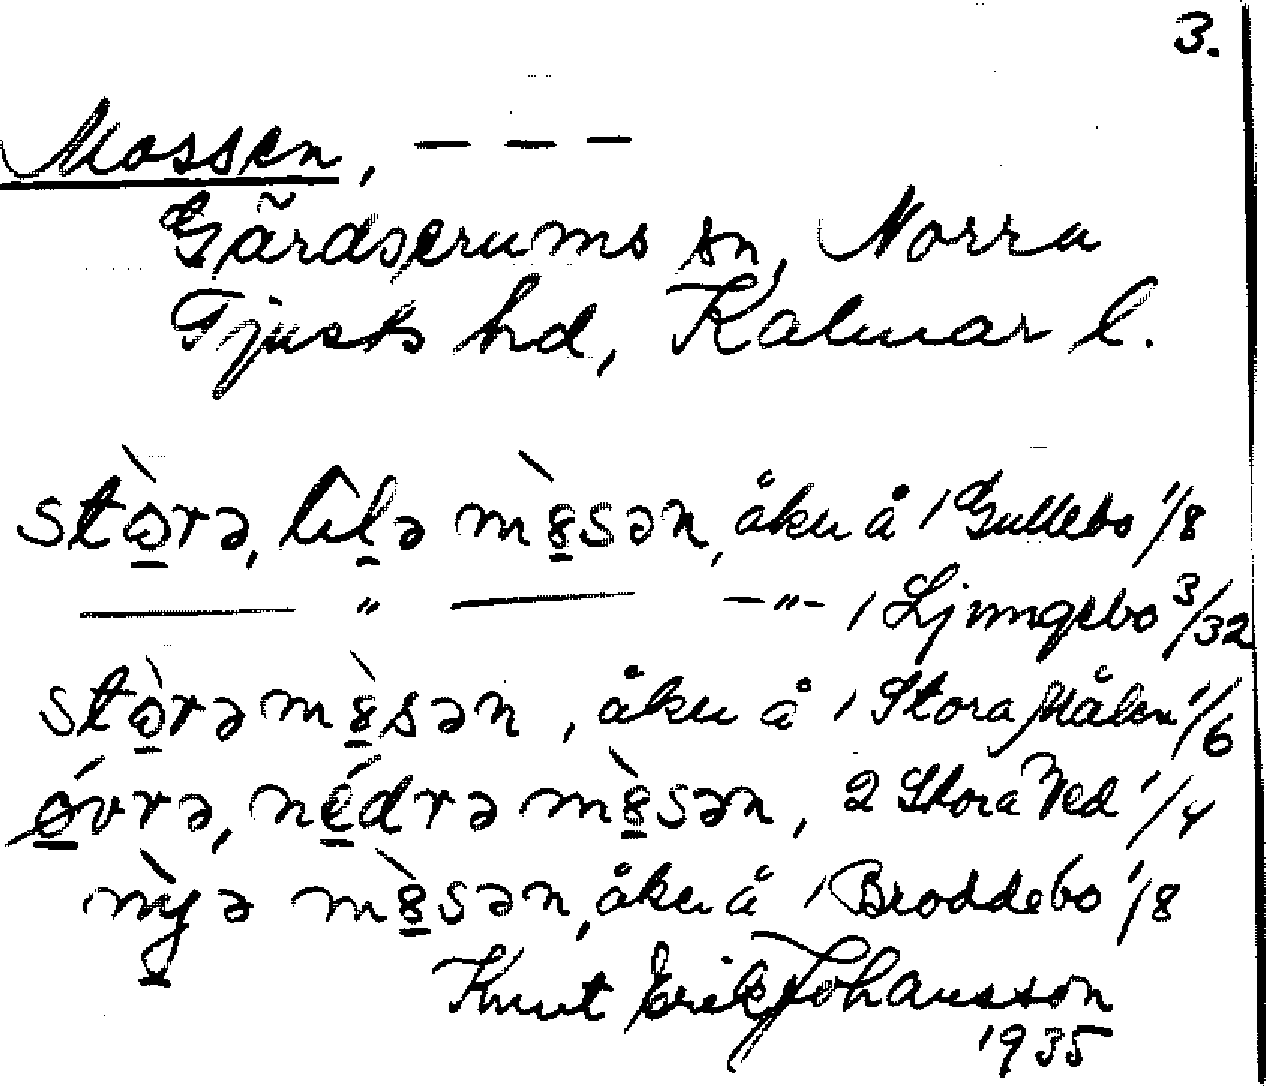 3.
Mossen, — — —
Gärdserums sn, Norra
Tjusts hd, Kalmar l.
stò̱rə, lìḻə mò̱sən, åker å 1 Gullebo 1/8
—— " —— —"— 1 Ljungebo 3/32
stò̱rəmò̱sən, åker å 1 Stora Målen 1/6
ǿ̱vrə, né̱drə mò̱sən, 2 Stora Ved 1/4
nỳ̱ə mò̱sən, åker å 1 Broddebo 1/8
Knut Erik Johansson
1935